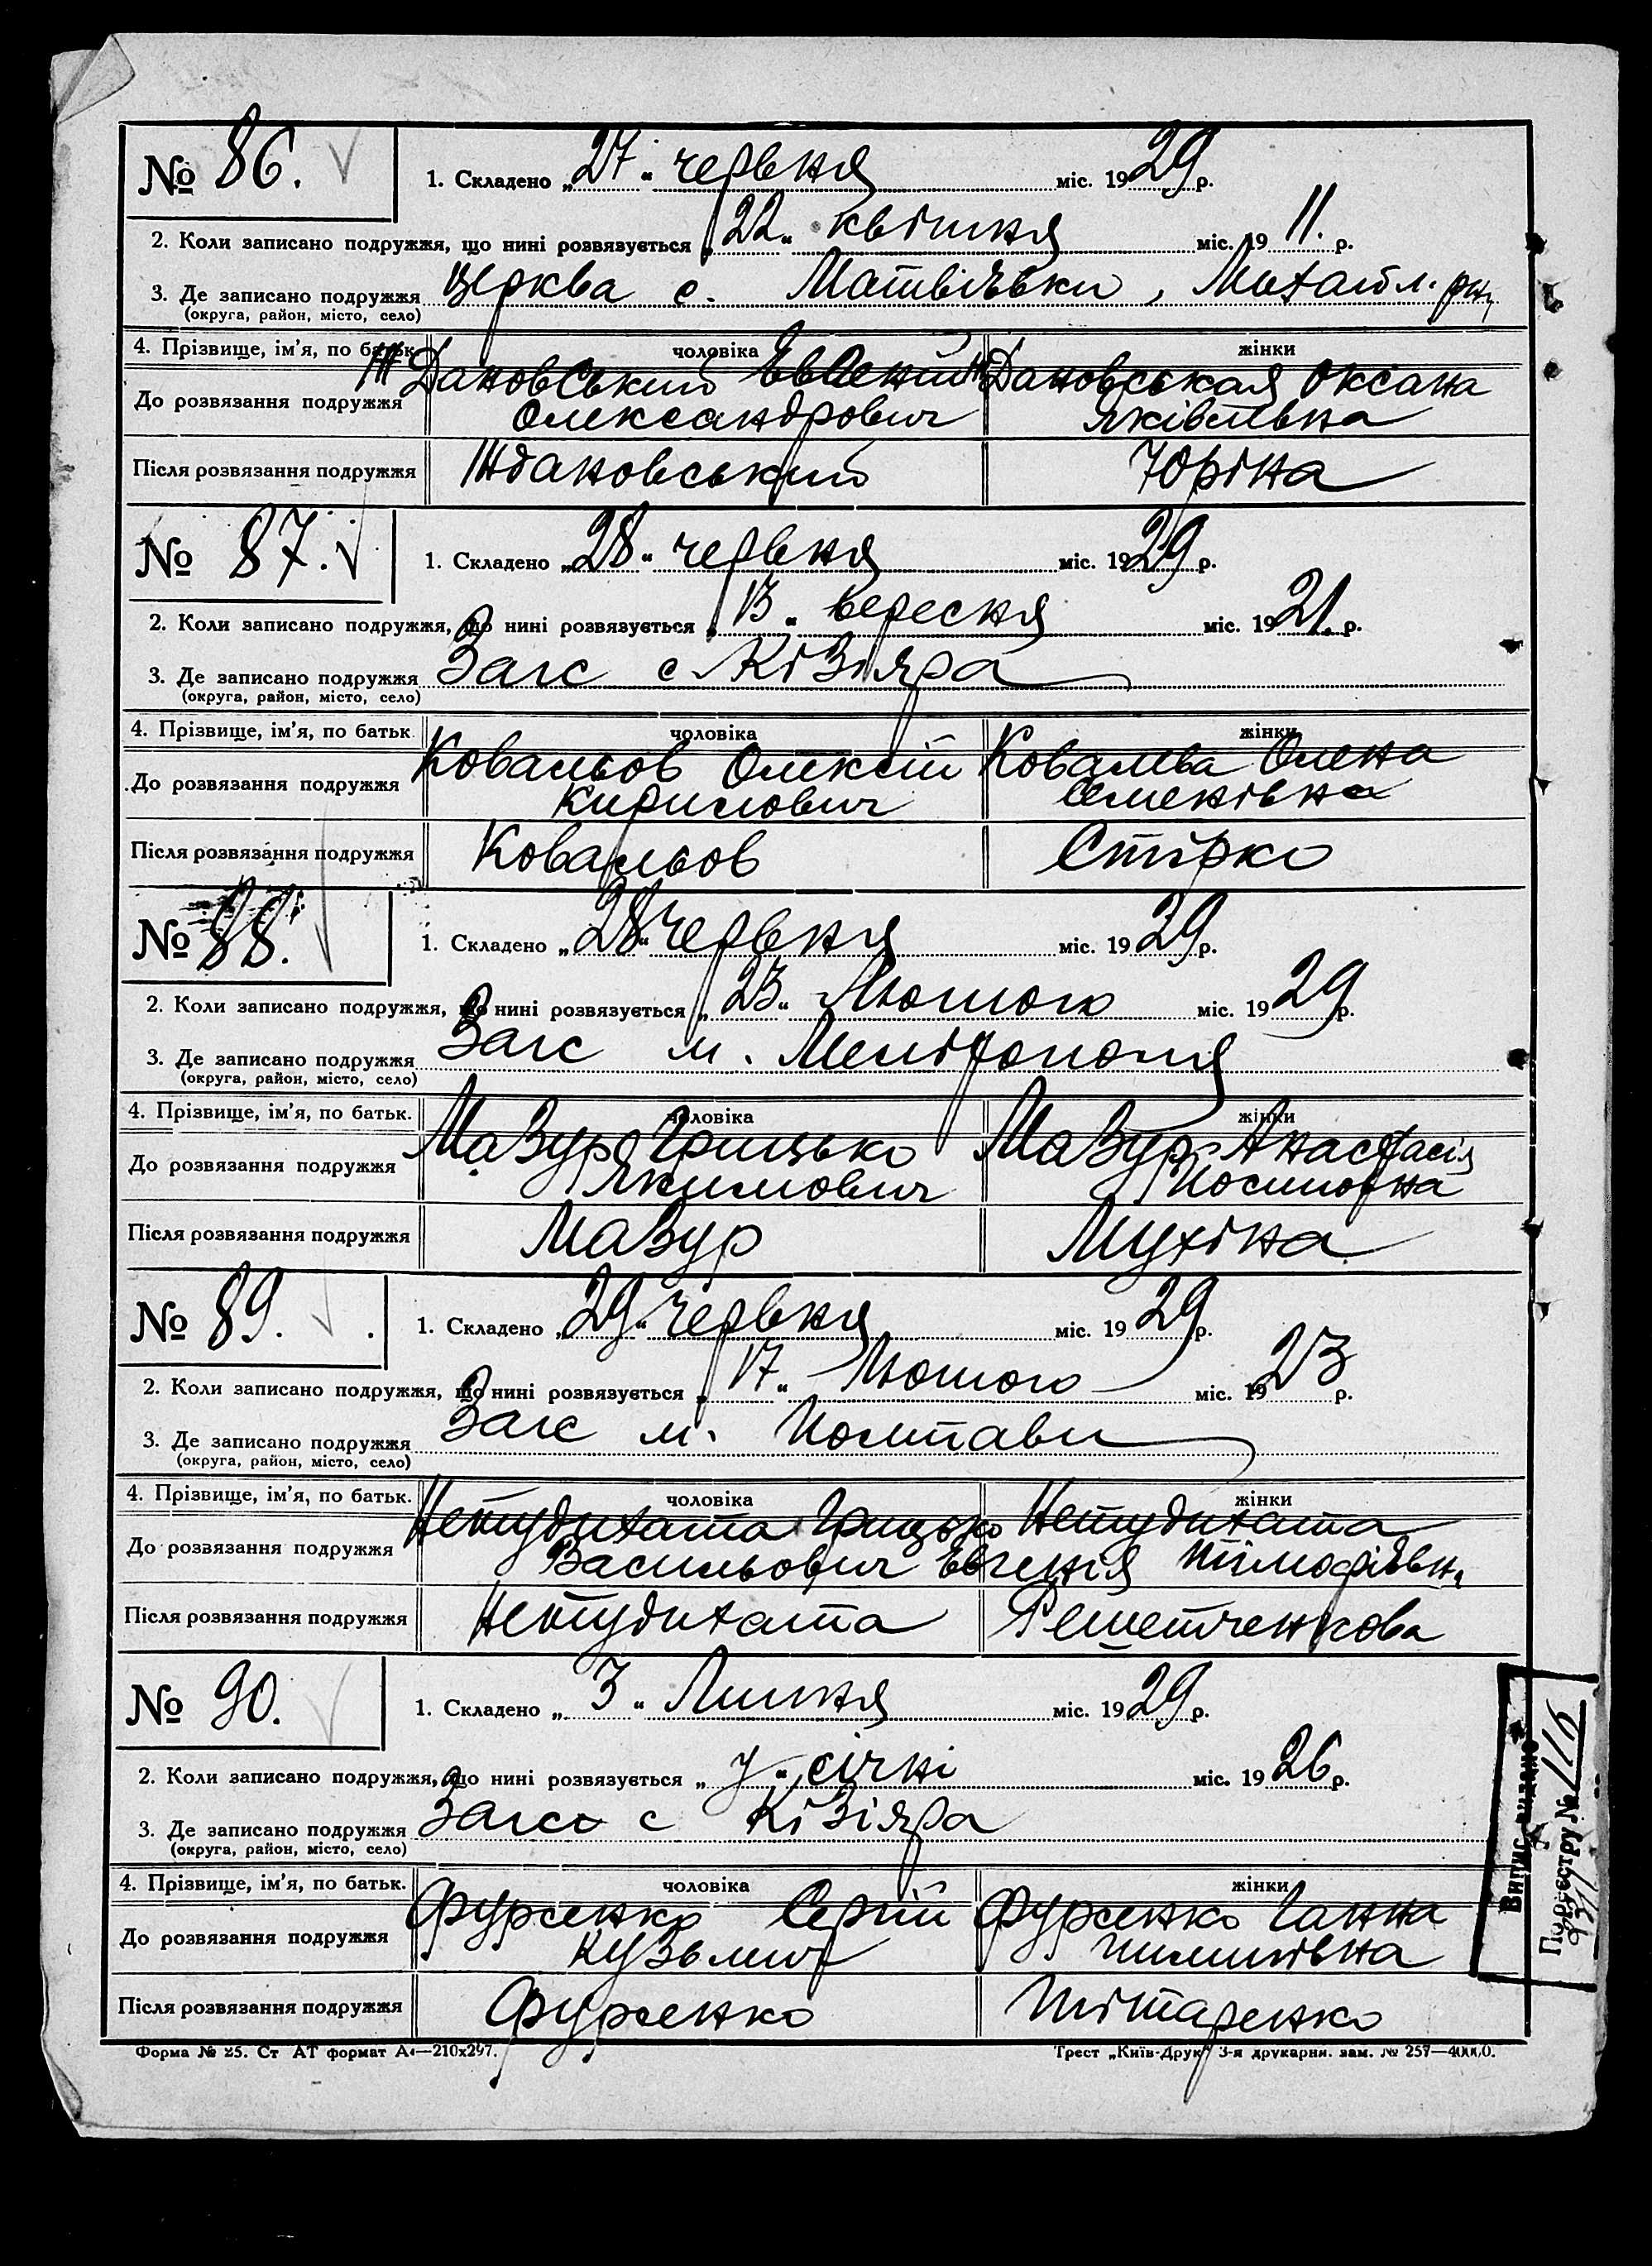 № 86.
1. Складено „27“ червня міс. 1929 р.
2. Коли записано подружжя, що нині розвязується „22“ квітня міс. 1911. р.
3. Де записано подружжя церква с. Матвіївки, Михайл. рну
(округа, район, місто, село)
4. Прізвище, ім'я, по батьк. чоловіка жінки
До розвязання подружжя Ждановський Ждановская Оксана
Олександрович Яківлівна
Після розвязання подружжя Ждановський Юріна
№ 87.
1. Складено „28“ червня міс. 1929 р.
2. Коли записано подружжя, що нині розвязується „13“ вересня міс. 1921. р.
3. Де записано подружжя Загс с. Кізіяра
(округа, район, місто, село)
4. Прізвище, ім'я, по батьк. чоловіка жінки
До розвязання подружжя Ковальов Олексій Ковалева Олена
Кирилович Семенівна
Після розвязання подружжя Ковальов Стірко
№ 88.
1. Складено „28“ Червня міс. 1929 р.
2. Коли записано подружжя, що нині розвязується „23“ Лютого міс. 1929 р.
3. Де записано подружжя Загс м. Мелітополя
(округа, район, місто, село)
4. Прізвище, ім'я, по батьк. чоловіка жінки
До розвязання подружжя Мазур Грицько Мазур Анастасія
Якимович Йосиповна
Після розвязання подружжя Мазур Мухіна
№ 89.
1. Складено „29“ Червня міс. 1929 р.
2. Коли записано подружжя, що нині розвязується „17“ Лютого міс. 1923 р.
3. Де записано подружжя Загс м. Полтави
(округа, район, місто, село)
4. Прізвище, ім'я, по батьк. чоловіка жінки
До розвязання подружжя Нетудихата Грицько Нетудихата
Васильович Евгенія Тімофіївн.
Після розвязання подружжя Нетудихата Решетченкова
№ 90.
1. Складено „3“ Липня міс. 1929 р.
2. Коли записано подружжя, що нині розвязується „у“ січні міс. 1926 р.
3. Де записано подружжя Загсе с Кізіяра
(округа, район, місто, село)
4. Прізвище, ім'я, по батьк. чоловіка жінки
До розвязання подружжя Фурсенко Сергій Фурсенко Ганна
Кузьмич Пилипівна
Після розвязання подружжя Фурсенко Тітаренко
Випис видано
По реєстру № 116
Форма № 25. Ст АТ формат А4—210х297.
Трест „Київ-Друк“ 3-я друкарня. зам. № 257—4000,0.